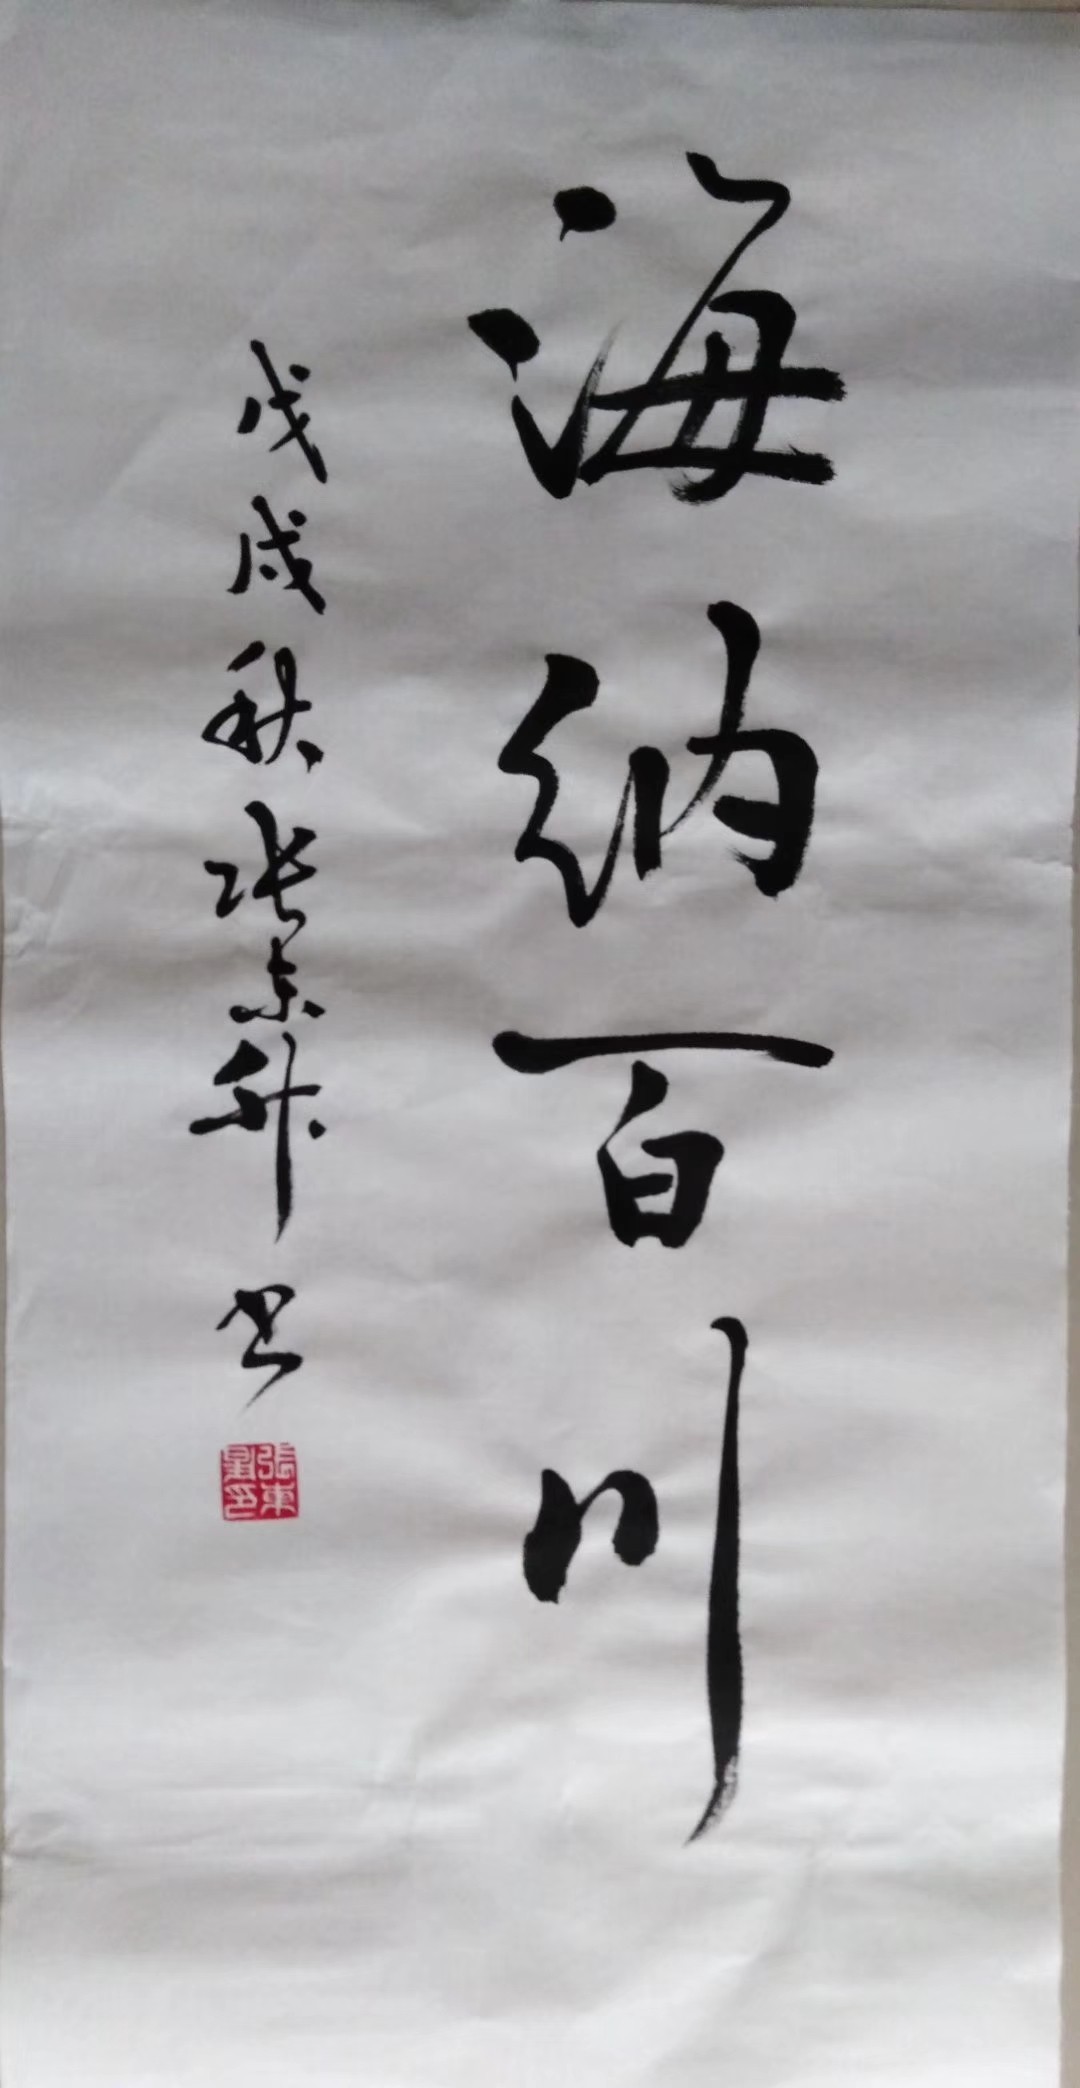 海纳百川
戊戌秋张东升书
張東昇印